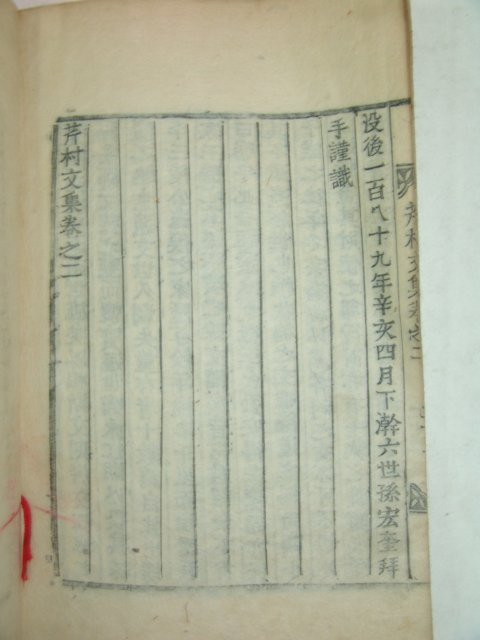 芹村文集卷之二
没後一百八十九年辛亥四月下澣六世孫宏奎拜
手謹識
芹村文集卷之二